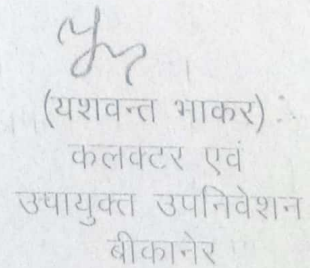 (यशवन्त भाकर)
कलक्टर एवं
उपायुक्त उपनिवेशन
बीकानेर